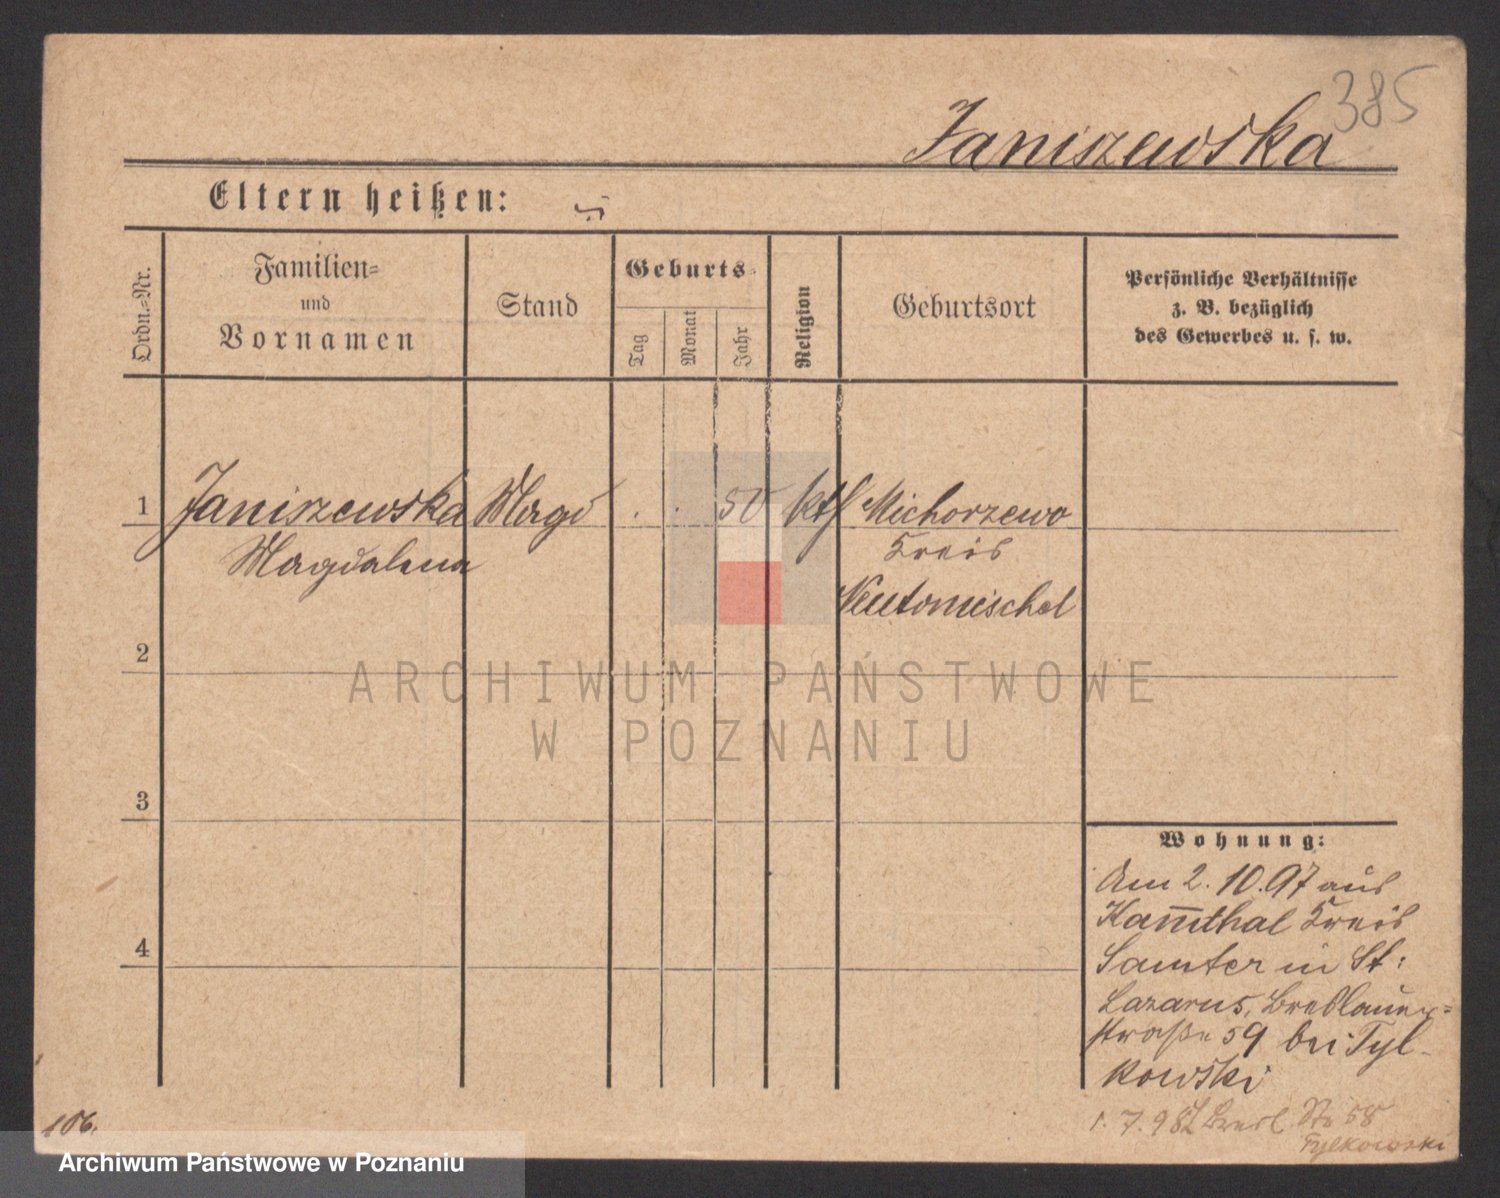 385
Janiszewska
Eltern heißen:
Ordn.-Nr.
Familien-
und
Vornamen
Stand
Geburts-
Tag
Monat
Jahr
Religion
Geburtsort
Persönliche Verhältnisse
z. B. bezüglich
des Gewerbes u. s. w.
1 Janiszewska Magd . . 50 kth Michorzewo
Magdalena Kreis
Neutomischel
2
ARCHIWUM PAŃSTWOWE
W POZNANIU
3
Wohnung:
Am 2. 10. 97 aus
Kam̅thal Kreis
Samter in St:
Lazarus, Breslauer-
straße 59 bei Tyl-
kowski
4
1. 7. 98 Bresl. Str 58
Tylkowski
106.
Archiwum Państwowe w Poznaniu